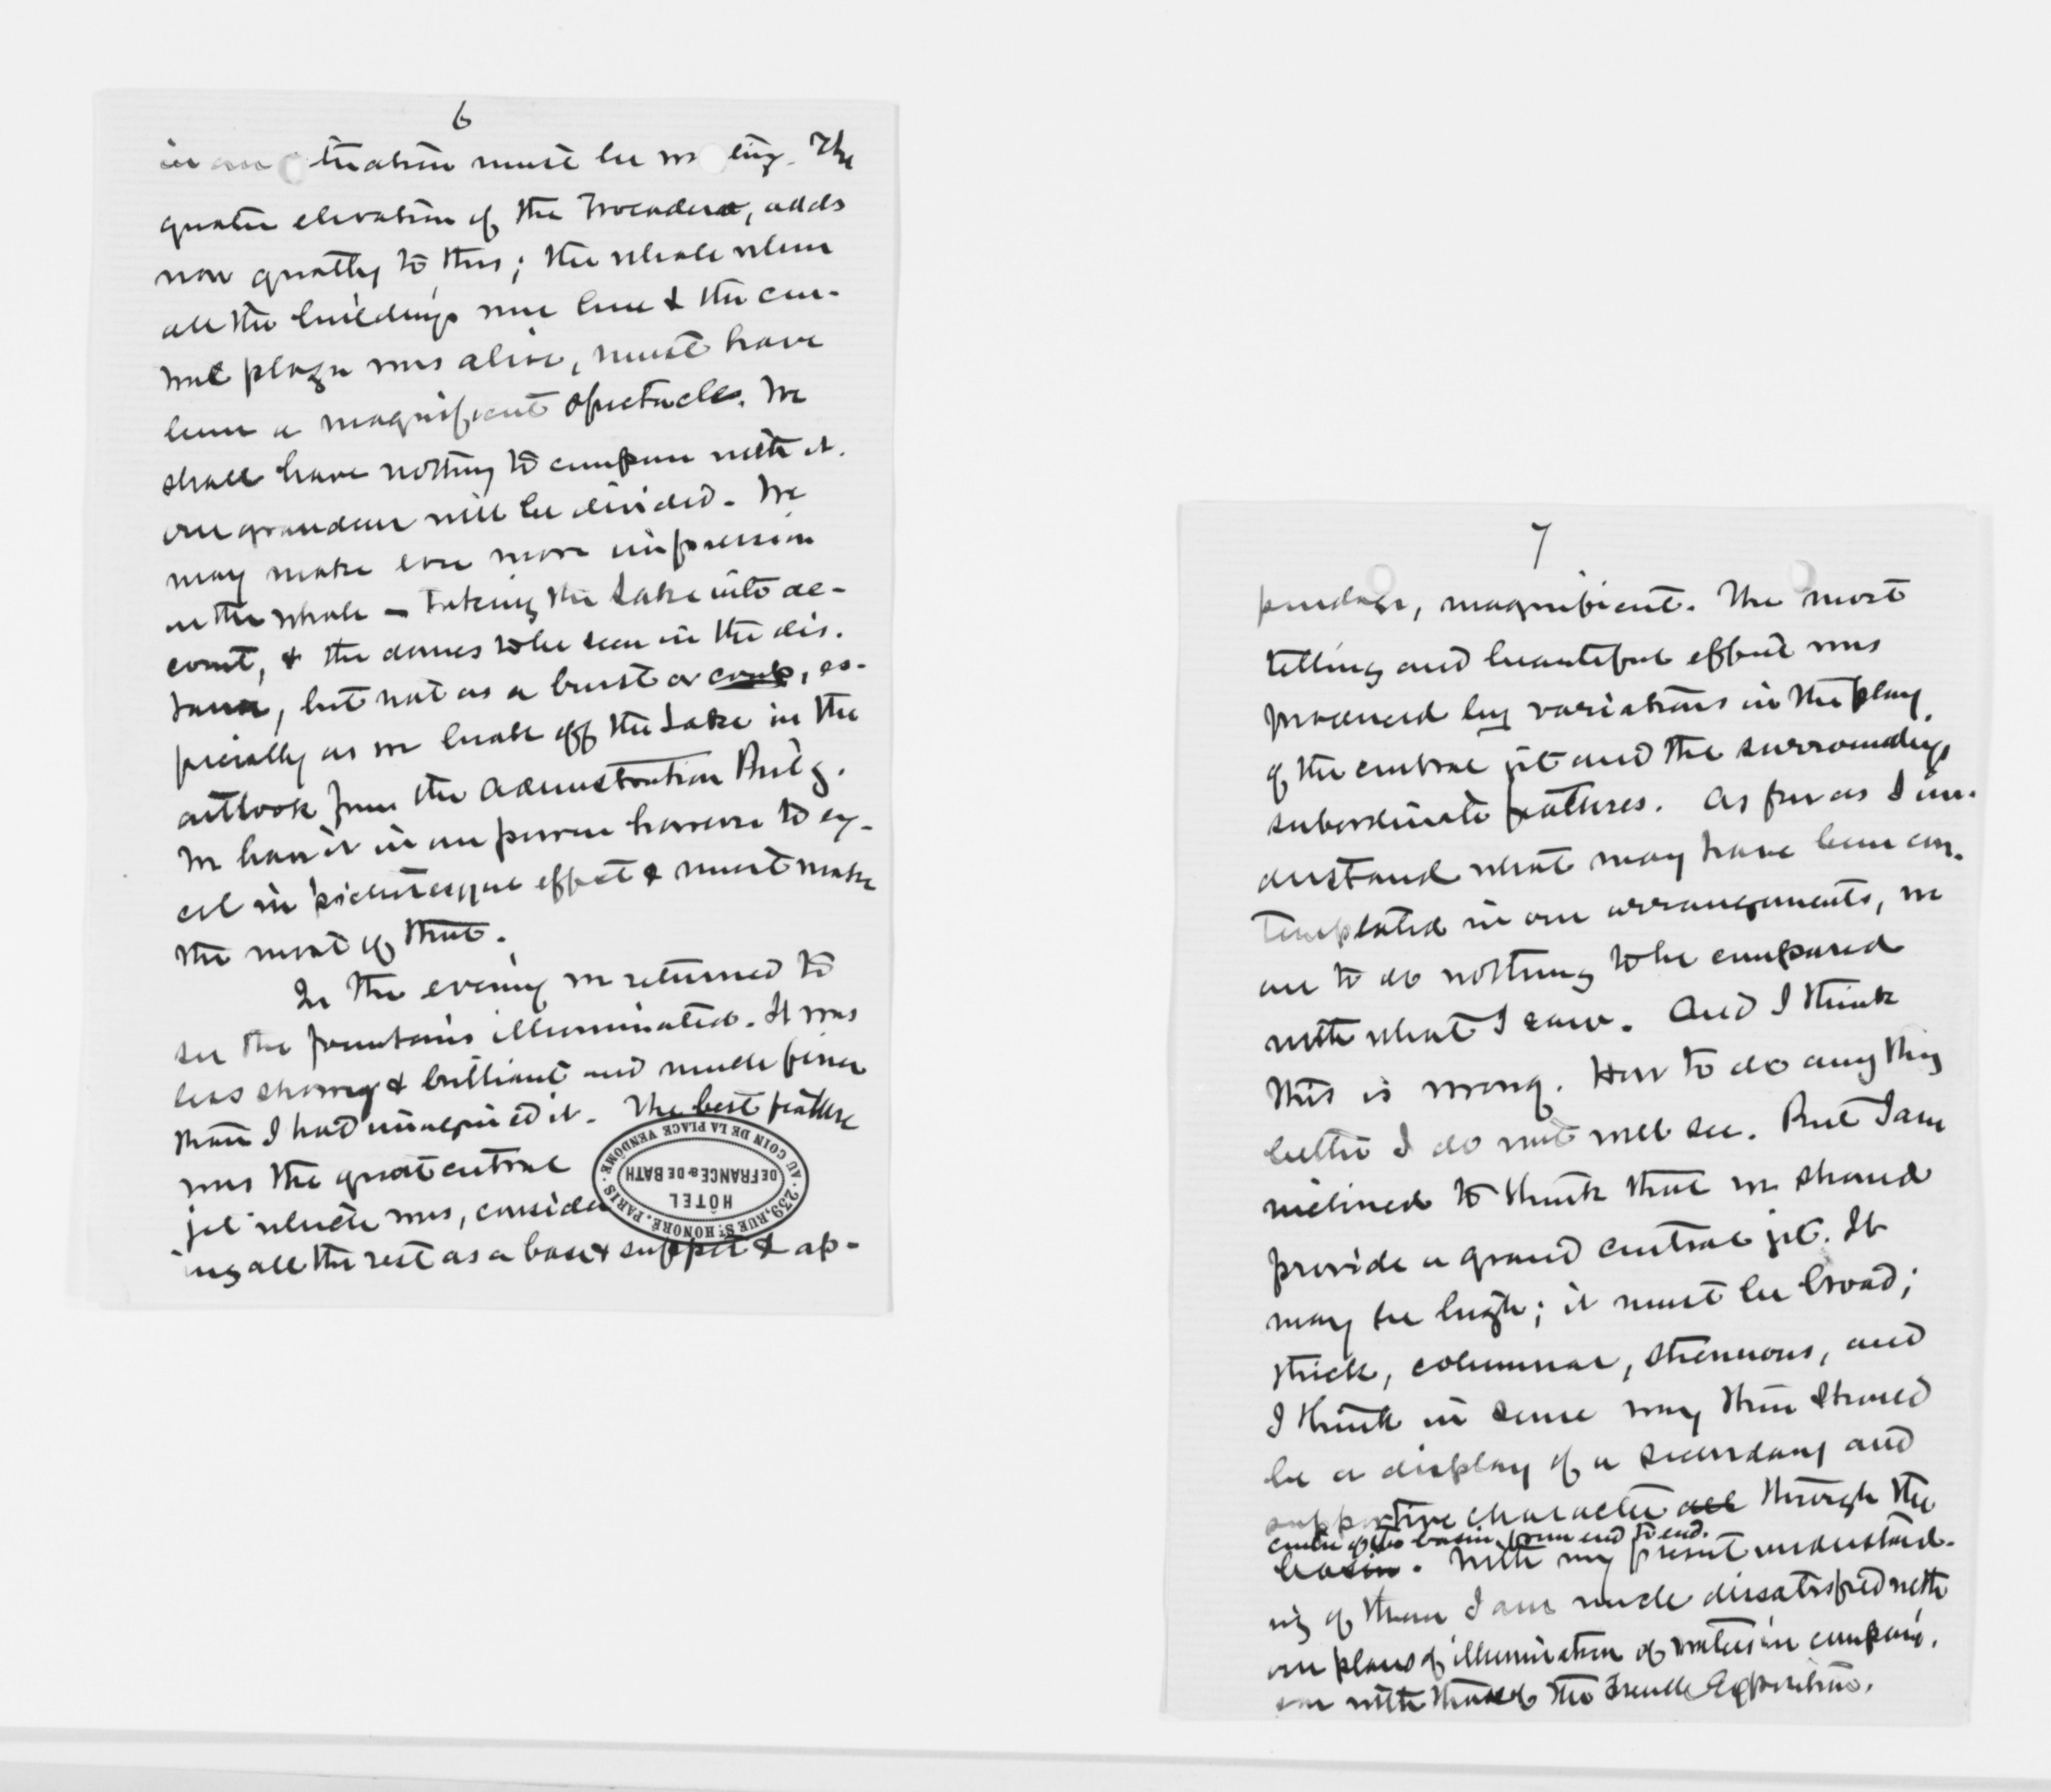 6
in our situation must be wanting. The
greater elevation of the Trocadero, adds
now greatly to this; the whole when
all the buildings were here & the cen-
tral plaza was alive, must have
been a magnificent spectacle. We
shall have nothing to compare with it.
our grandeur will be divided. We
may make even more impression
on the whole – taking the Lake into ac-
count, & the domes to be seen in the dis-
tance, but not as a burst or coup, es-
pecially as we break off the Lake in the
outlook from the Administration Build'g.
We have it in our power however to ex-
cel in picturesque effect & must make
the most of that.
In the evening we returned to
see the fountains illuminated. It was
less showy & brilliant and much finer
than I had imagined it. The best feature
was the great central
jet which was, consider-
ing all the rest as a base & support & ap-
AU COIN DE LA PLACE VENDÔME
HÔTEL
DE FRANCE & DE BATH
239, RUE ST. HONORÉ. PARIS
7
pendage, magnificent. The most
telling and beautiful effect was
produced by variations in the play
of the central jet and the surrounding
subordinate features. As far as I un-
derstand what may have been con-
templated in our arrangements, we
are to do nothing to be compared
with what I saw. And I think
this is wrong. How to do any thing
better I do not well see. But I am
inclined to think that we should
provide a grand central jet. It
may be high; it must be broad;
thick, columnar, strenuous, and
I think in some way there should
be a display of a secondary and
supportive character all through the
center of the basin from end to end.
basin. With my present understand-
ing of them I am much dissatisfied with
our plans of illumination of waters in compari-
son with those of the French Exposition.